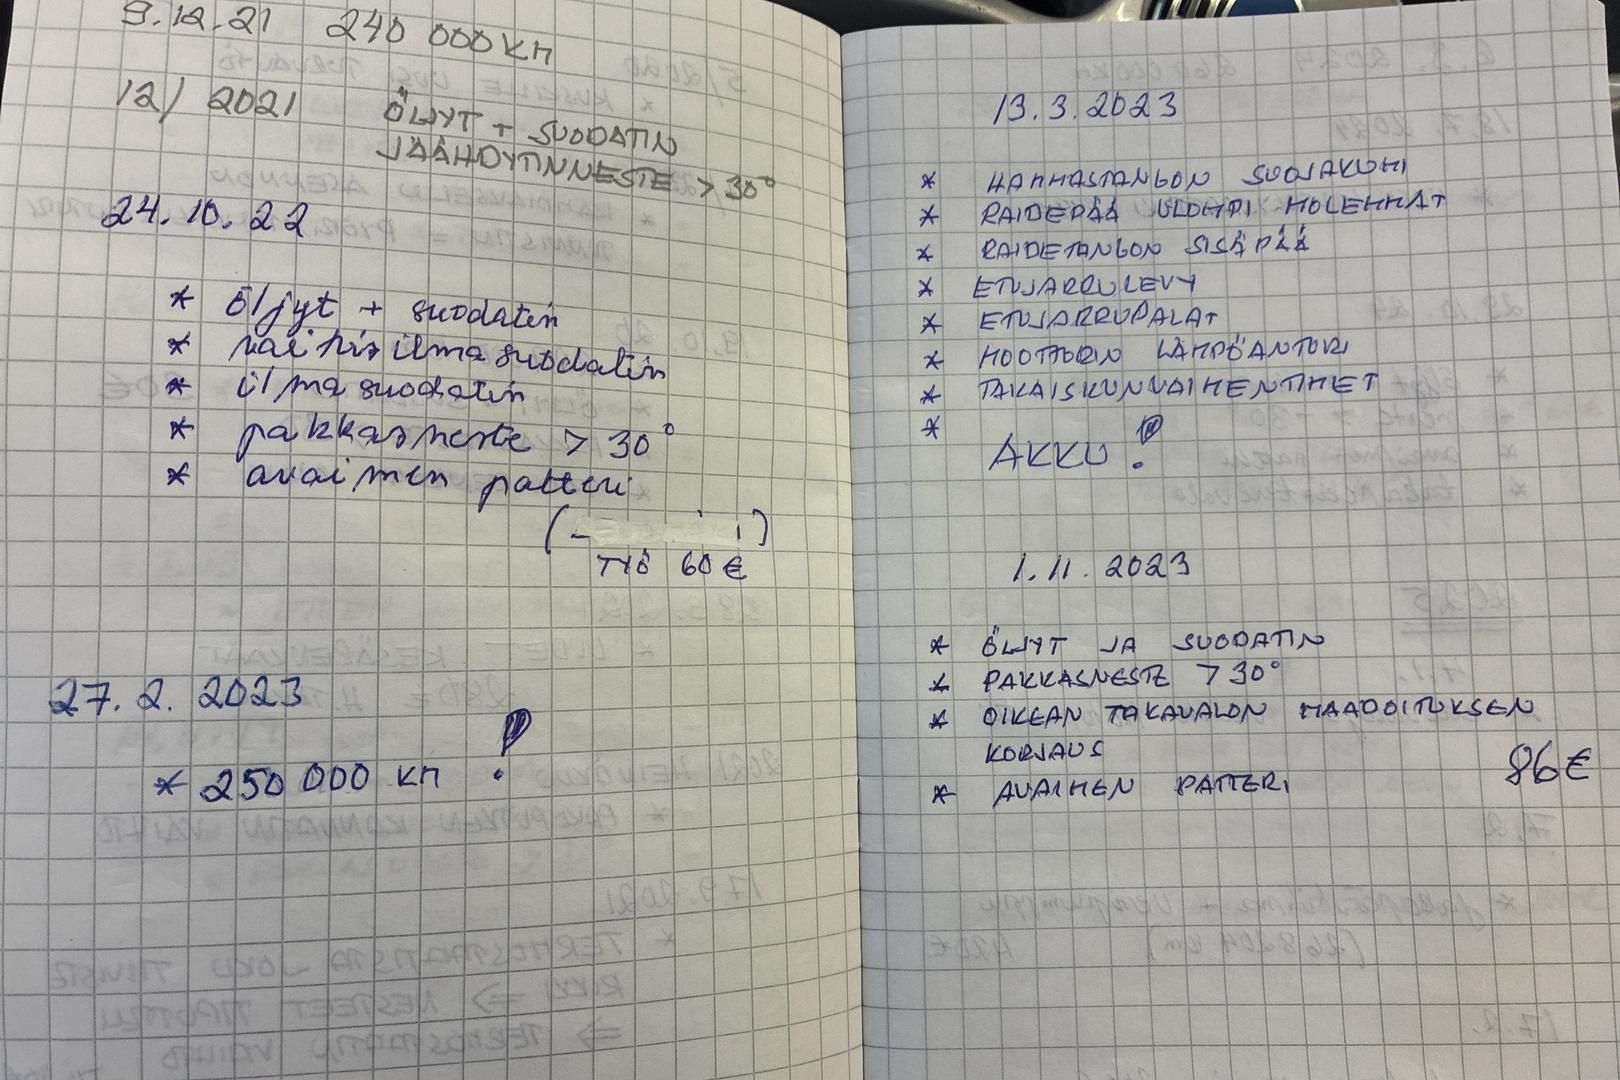 9.12.21 240 000 KM
12/2021 ÖLJYT + SUODATIN
JÄÄHDYTINNESTE > 30°
24.10.22
* öljyt + suodatin
* raitis ilma suodatin
* ilma suodatin
* pakkasneste > 30°
* avaimen patteri
TYÖ 60 €
27.2.2023
* 250 000 KM !
13.3.2023
* HAMMASTANGON SUOJAKUMI
* RAIDEPÄÄ ULOMPI MOLEMMAT
* RAIDETANGON SISÄPÄÄ
* ETUJARRULEVY
* ETUJARRUPALAT
* MOOTTORIN LÄMPÖANTURI
* TAKAISKUNVAIMENTIMET
*
AKKU !
1.11.2023
* ÖLJYT JA SUODATIN
* PAKKASNESTE > 30°
* OIKEAN TAKAVALON MAADOITUKSEN
KORJAUS
86 €
* AVAIMEN PATTERI